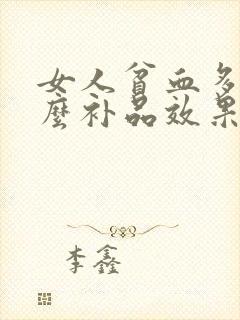 女人贫血多
麽补品效果
李鑫